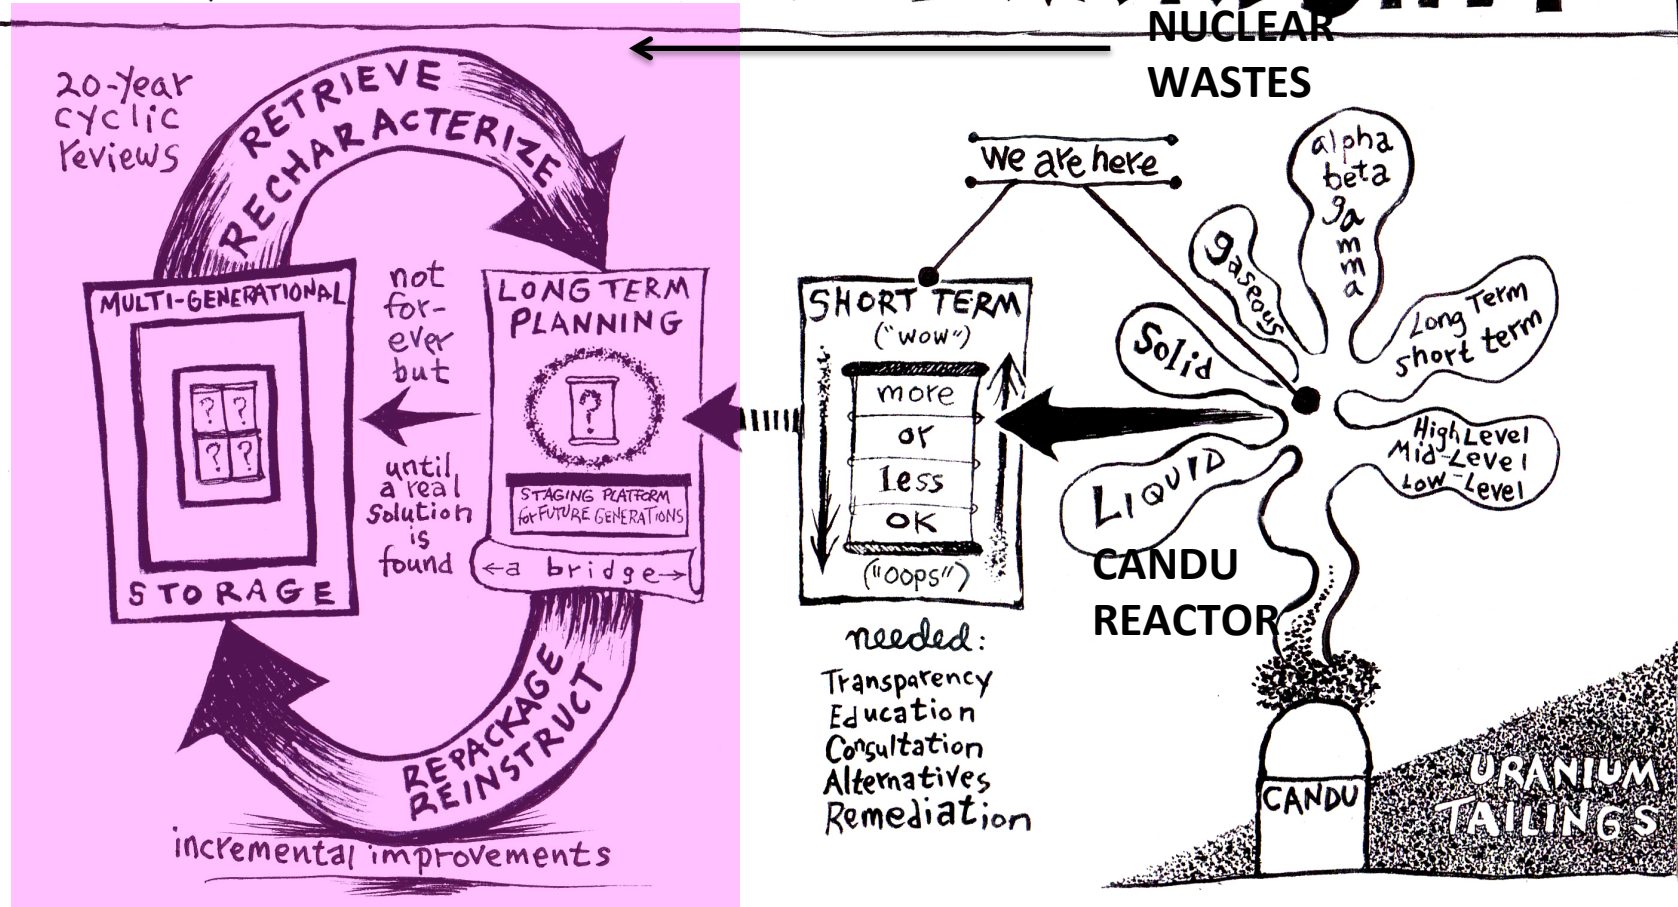 NUCLEAR
WASTES
20-year
cyclic
reviews
RETRIEVE
RECHARACTERIZE
MULTI-GENERATIONAL
? ?
? ?
STORAGE
not
for-
ever
but
until
a real
solution
is
found
LONG TERM
PLANNING
?
STAGING PLATFORM
for FUTURE GENERATIONS
←a bridge→
REPACKAGE
REINSTRUCT
incremental improvements
we are here
SHORT TERM
("WOW")
more
or
less
OK
("OOPS")
needed:
Transparency
Education
Consultation
Alternatives
Remediation
alpha
beta
ga
m
m
a
gaseous
Solid
LIQUID
Long Term
short term
High Level
Mid-Level
Low-Level
CANDU
REACTOR
CANDU
URANIUM
TAILINGS